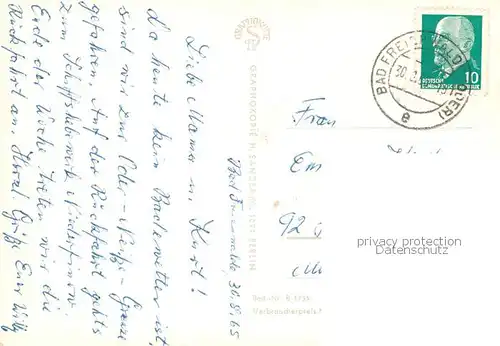 Bad Freienwalde, 30.8.65
Liebe Mama u. Kurt!
Da heute kein Badewetter ist,
sind wir zur Oder-Neiße-Grenze
gefahren. Auf der Rückfahrt gehts
zum Schiffshebewerk Niederfinow.
Ende der Woche treten wir die
Rückfahrt an. Herzl. Grüße Euer Willy
GRAPHOKOPIE H. SANDER KG, 1055 BERLIN
Best.-Nr. B
Verbraucherpreis
BAD FREIENWALDE (ODER)
30.8.
e
10
DEUTSCHE
DEMOKRATISCHE REPUBLIK
Frau
Em
92
privacy protection
Datenschutz